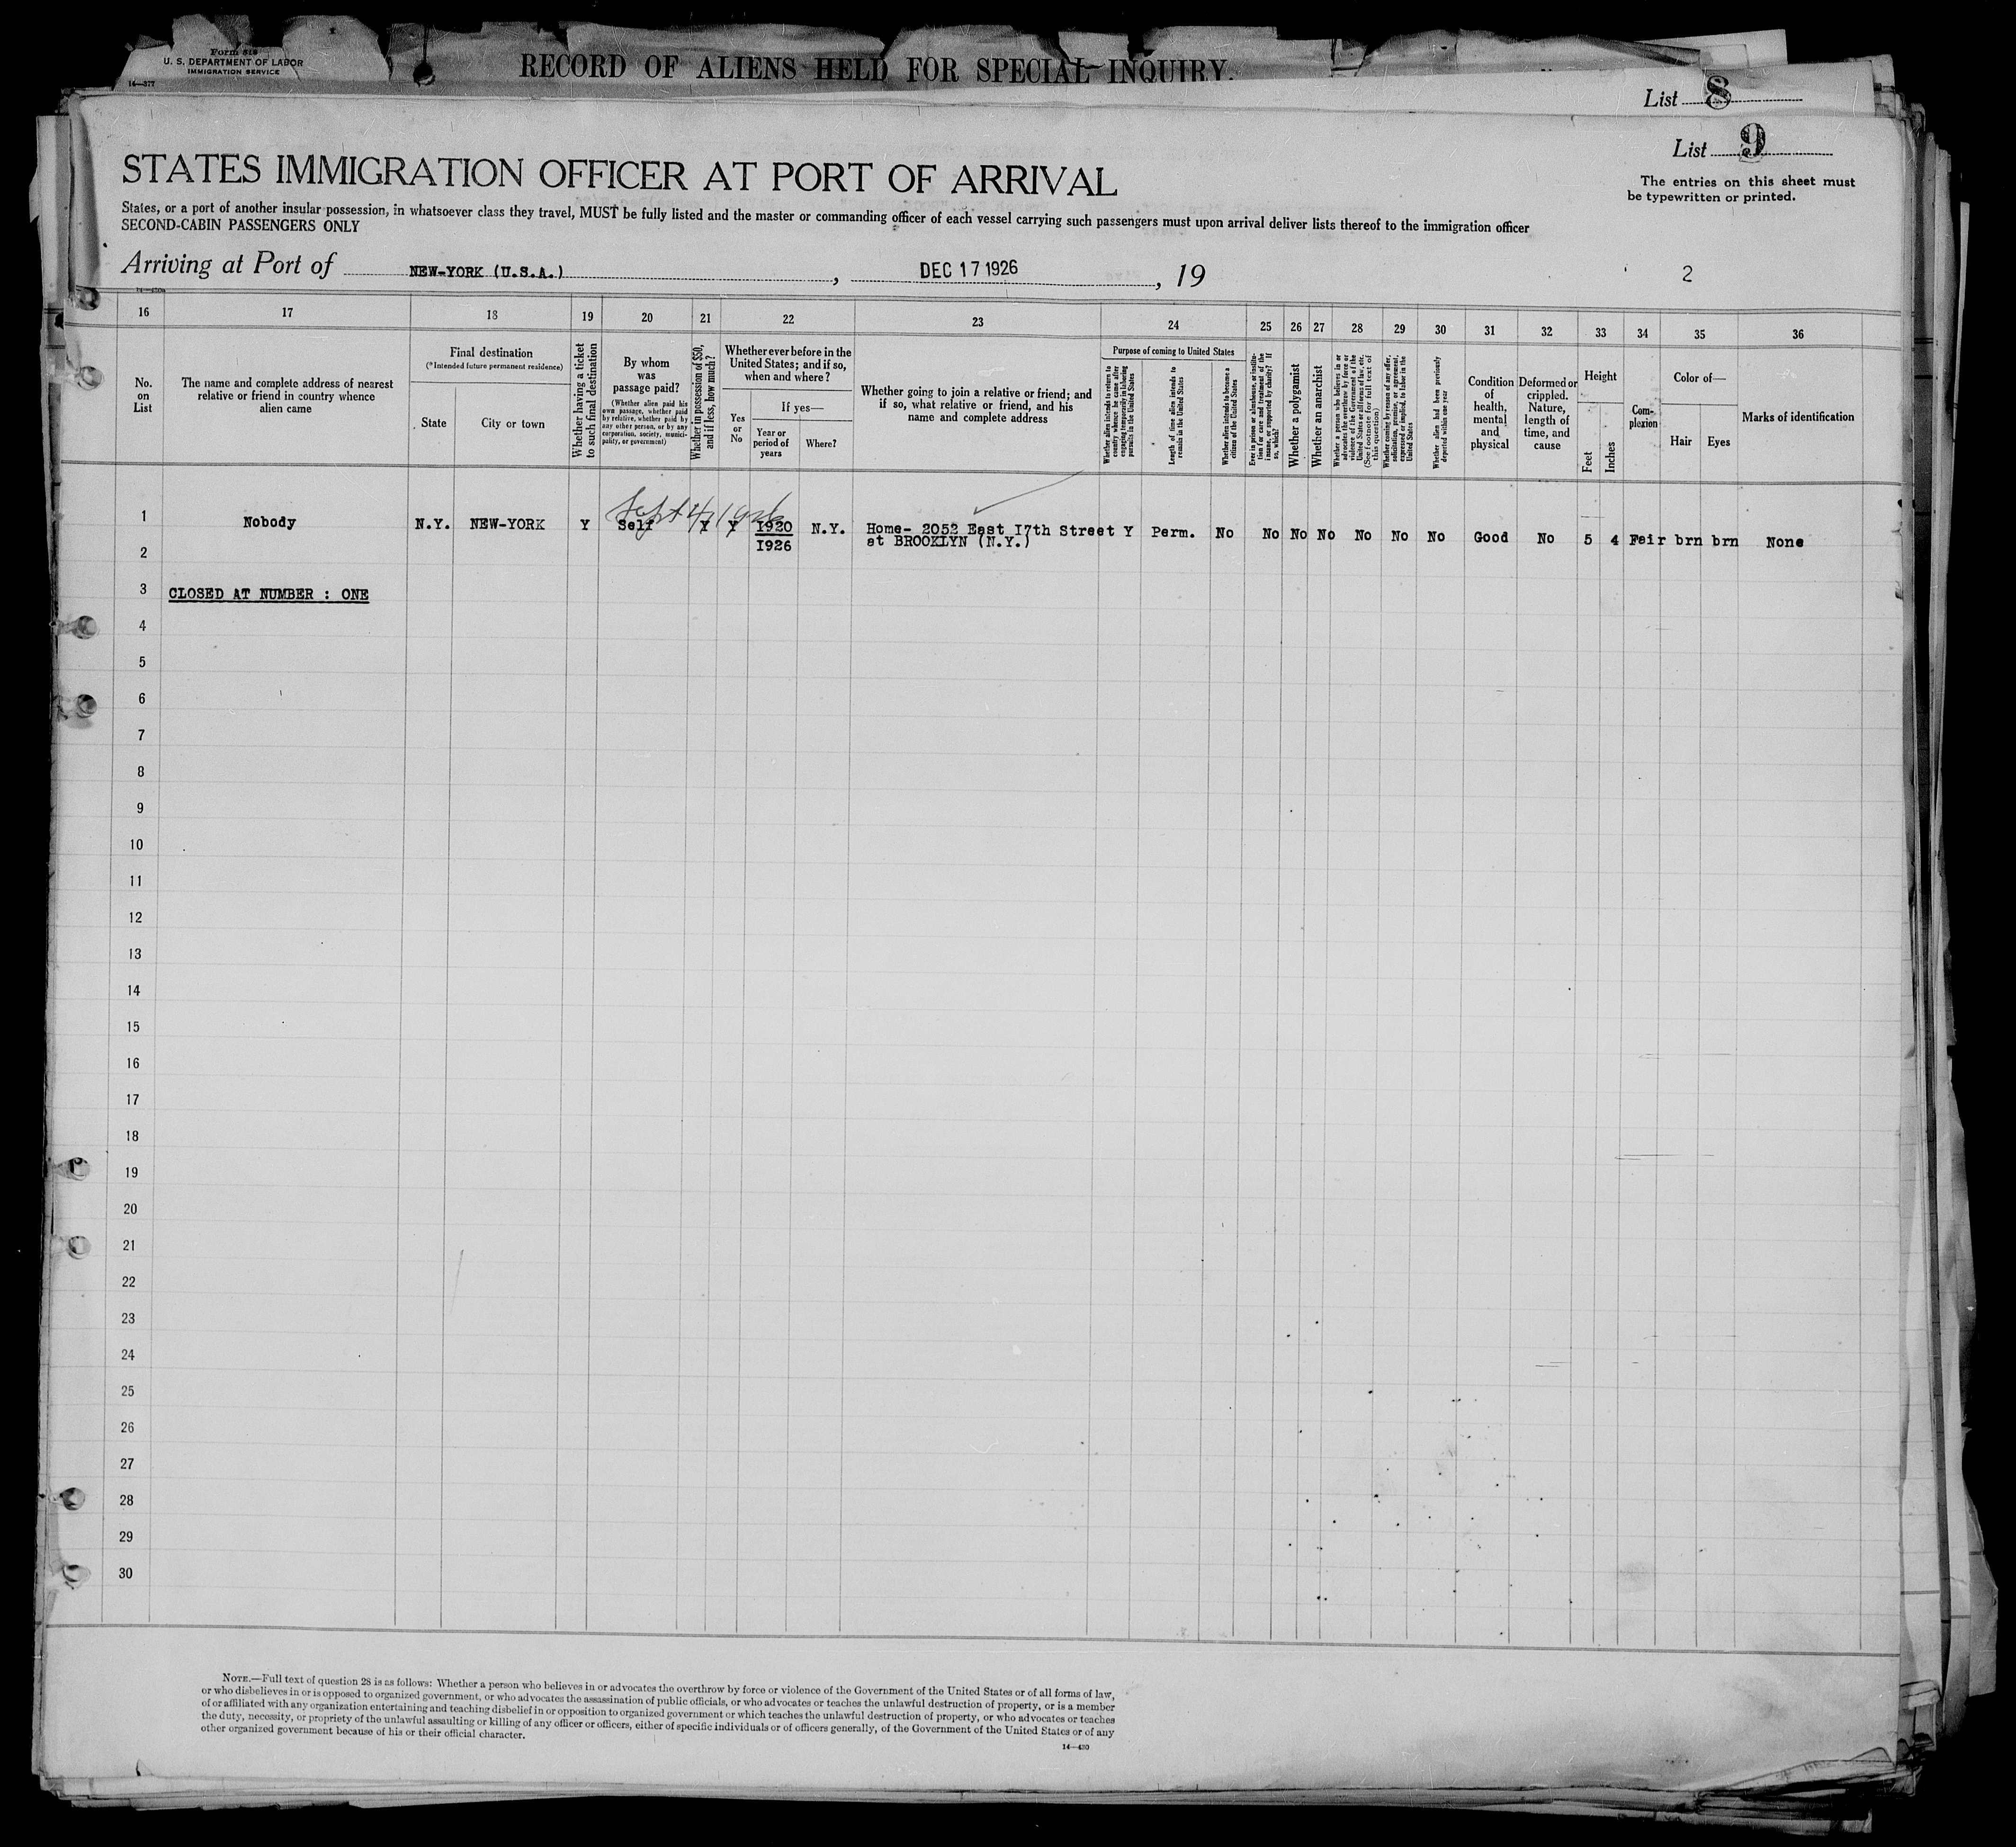 Form 819
U. S. DEPARTMENT OF LABOR
IMMIGRATION SERVICE
14—377
RECORD OF ALIENS HELD FOR SPECIAL INQUIRY.
List 8
List 9
The entries on this sheet must
be typewritten or printed.
STATES IMMIGRATION OFFICER AT PORT OF ARRIVAL
States, or a port of another insular possession, in whatsoever class they travel, MUST be fully listed and the master or commanding officer of each vessel carrying such passengers must upon arrival deliver lists thereof to the immigration officer
SECOND-CABIN PASSENGERS ONLY
Arriving at Port of NEW-YORK (U.S.A.), DEC 17 1926, 19
2
16 17 18 19 20 21 22 23 24 25 26 27 28 29 30 31 32 33 34 35 36
No.
on
List
The name and complete address of nearest
relative or friend in country whence
alien came
Final destination
(*Intended future permanent residence)
State
City or town
Whether having a ticket
to such final destination
By whom
was
passage paid?
(Whether alien paid his
own passage, whether paid
by relative, whether paid by
any other person, or by any
corporation, society, munici-
pality, or government)
Whether in possession of $50,
and if less, how much?
Whether ever before in the
United States; and if so,
when and where?
Yes
or
No
If yes—
Year or
period of
years
Where?
Whether going to join a relative or friend; and
if so, what relative or friend, and his
name and complete address
Purpose of coming to United States
Whether alien intends to return to
country whence he came after
engaging temporarily in laboring
pursuits in the United States
Length of time alien intends to
remain in the United States
Whether alien intends to become a
citizen of the United States
Ever in prison or almshouse, or institu-
tion for care and treatment of the
insane, or supported by charity? If
so, which?
Whether a polygamist
Whether an anarchist
Whether a person who believes in or
advocates the overthrow by force or
violence of the Government of the
United States or all forms of law, etc.
(See footnote for full text of
this question)
Whether coming by reason of any offer,
solicitation, promise, or agreement,
expressed or implied, to labor in the
United States
Whether alien had been previously
deported within one year
Condition
of
health,
mental
and
physical
Deformed or
crippled.
Nature,
length of
time, and
cause
Height
Feet
Inches
Com-
plexion
Color of—
Hair
Eyes
Marks of identification
Sept 4/1926
1 Nobody N.Y. NEW-YORK Y Self Y Y 1920 N.Y. Home- 2052 East 17th Street Y Perm. No No No No No No No Good No 5 4 Fair brn brn None
2 1926 at BROOKLYN (N.Y.)
3 CLOSED AT NUMBER : ONE
4
5
6
7
8
9
10
11
12
13
14
15
16
17
18
19
20
21
22
23
24
25
26
27
28
29
30
NOTE.—Full text of question 28 is as follows: Whether a person who believes in or advocates the overthrow by force or violence of the Government of the United States or of all forms of law,
or who disbelieves in or is opposed to organized government, or who advocates the assassination of public officials, or who advocates or teaches the unlawful destruction of property, or is a member
of or affiliated with any organization entertaining and teaching disbelief in or opposition to organized government or which teaches the unlawful destruction of property, or who advocates or teaches
the duty, necessity, or propriety of the unlawful assaulting or killing of any officer or officers, either of specific individuals or of officers generally, of the Government of the United States or of any
other organized government because of his or their official character.
14—430